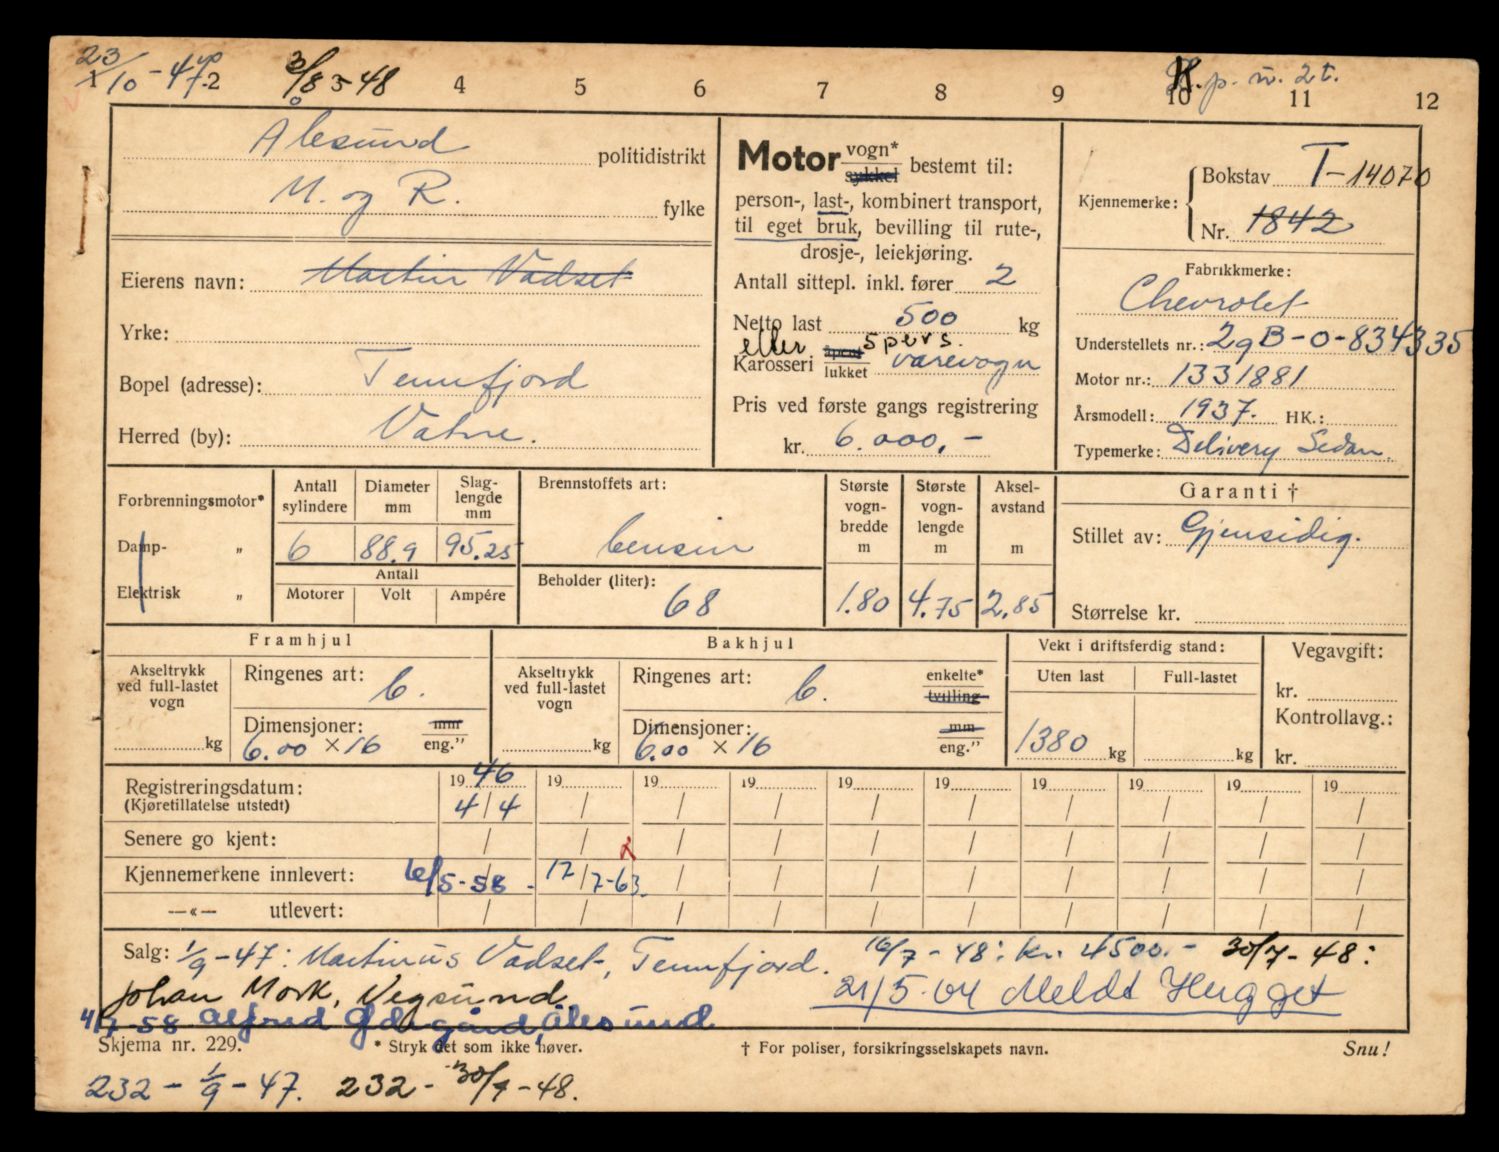 23/10-47 3/8-48 K.p. n. 2t.
1 2 3 4 5 6 7 8 9 10 11 12
Ålesund politidistrikt
M. og R. fylke
Eierens navn: Martin Vadset
Yrke:
Bopel (adresse): Tennfjord
Herred (by): Vatne.
Motor vogn* sykkel bestemt til:
person-, last-, kombinert transport,
til eget bruk, bevilling til rute-,
drosje-, leiekjøring.
Antall sittepl. inkl. fører 2
Netto last 500 kg
eller 5 pers.
Karosseri åpent lukket varevogn
Pris ved første gangs registrering
kr. 6.000,-
Kjennemerke: Bokstav T-14070
Nr. 1842
Fabrikkmerke:
Chevrolet
Understellets nr.: 2gB-0-834335
Motor nr.: 1331881
Årsmodell: 1937. HK.:
Typemerke: Delivery Sedan.
Forbrenningsmotor*
Damp- „
Elektrisk „
Antall sylindere 6
Diameter mm 88.9
Slaglengde mm 95.25
Antall
Motorer Volt Ampére
Brennstoffets art:
bensin
Beholder (liter):
68
Største vognbredde m 1.80
Største vognlengde m 4.75
Akselavstand m 2.85
Garanti †
Stillet av: Gjensidig.
Størrelse kr.
Framhjul
Akseltrykk ved full-lastet vogn kg
Ringenes art: 6.
Dimensjoner: mm
6.00 × 16 eng.”
Bakhjul
Akseltrykk ved full-lastet vogn kg
Ringenes art: 6. enkelte* tvilling
Dimensjoner: mm
6.00 × 16 eng.”
Vekt i driftsferdig stand:
Uten last Full-lastet
1380 kg kg
Vegavgift:
kr.
Kontrollavg.:
kr.
Registreringsdatum: 1946 19 19 19 19 19 19 19 19 19
(Kjøretillatelse utstedt) 4/4 / / / / / / / / /
Senere go kjent: / / / / / / / / / /
Kjennemerkene innlevert: 6/5-58 - 17/7-63. / / / / / / / /
—«— utlevert: / / / / / / / / / /
Salg: 1/9-47: Martinus Vadset, Tennfjord. 16/7-48: kr. 4500.- 30/7-48:
Johan Mork, Vegsund 21/5-64 Meldt Hugget
4/7-58 Alfred Ødegård, Ålesund
Skjema nr. 229. * Stryk det som ikke høver. † For poliser, forsikringsselskapets navn. Snu!
232 - 1/9-47. 232 - 30/7-48.